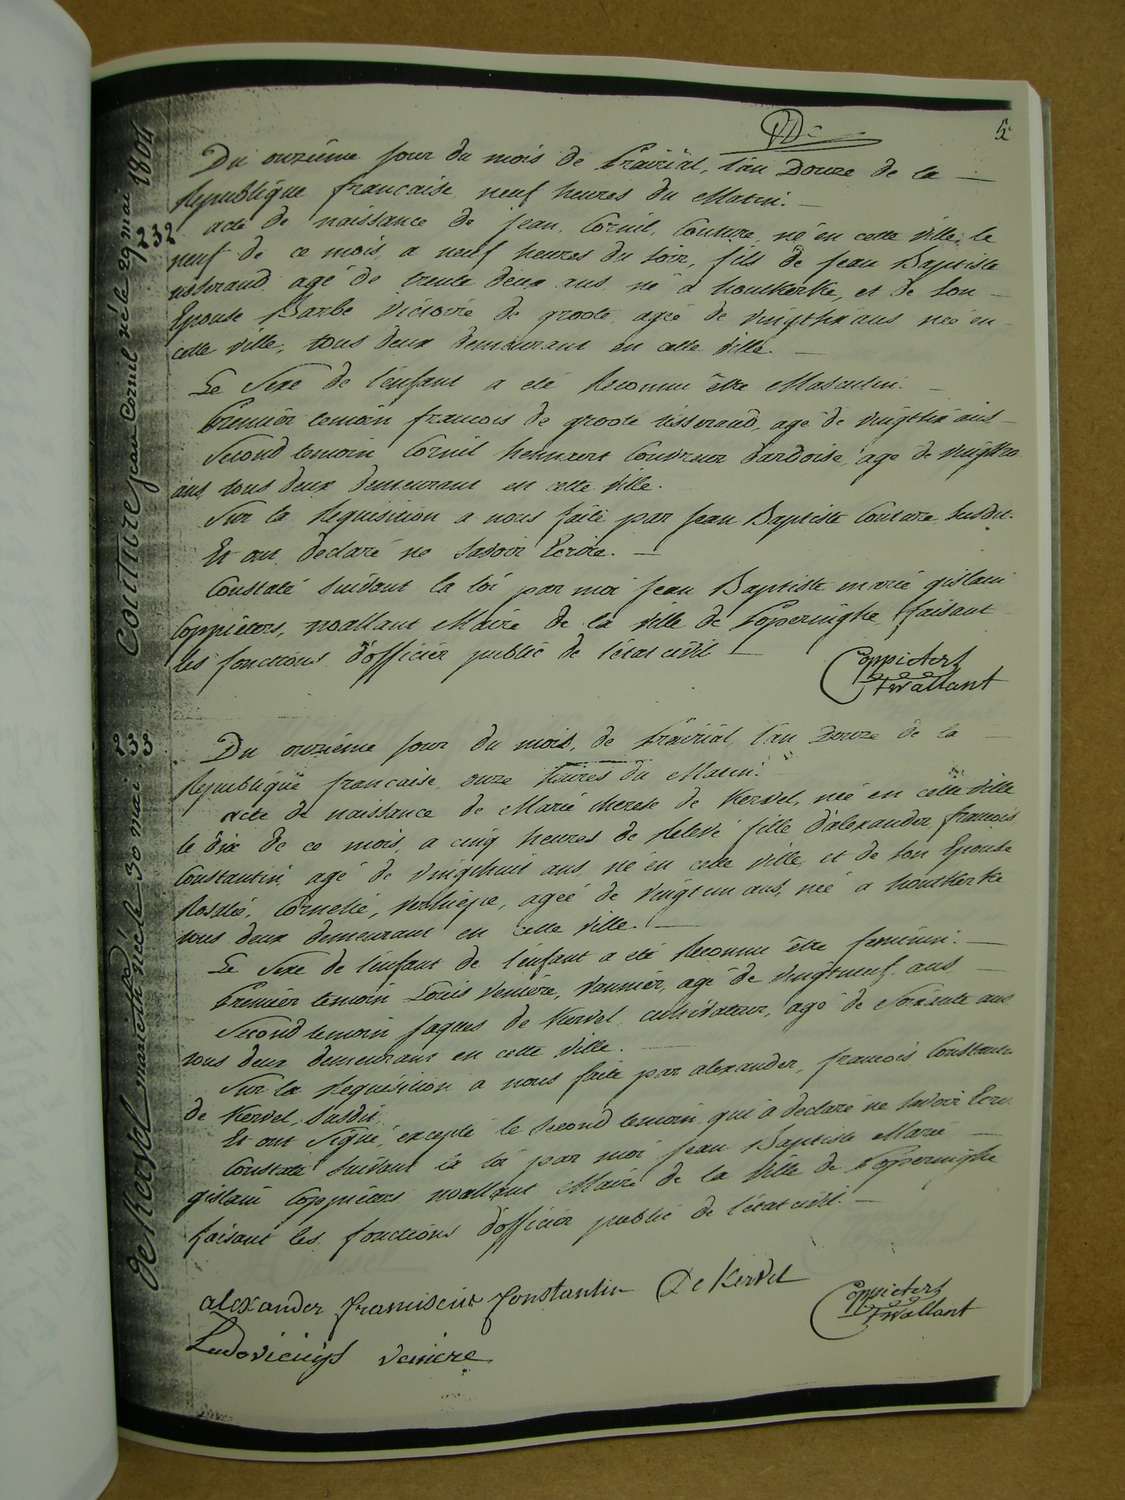 5
Du onzieme jour du mois de Prairial, l'an Douze de la
Republique francaise neuf heures du Matin.
acte de naissance de jean Cornil Couture, né en cette ville, le
neuf de ce mois, a neuf heures du soir, fils de jean Baptiste
tisserand, agé de trente deux ans, né à houtkerke, et de son
Epouse Barbe Victoire de groote, agée de vingtsix ans née en
cette ville, tous deux demeurant en cette ville.
Le Sexe de l'enfant a eté Reconnu être Masculin.
Premier temoin francois de groote tisserand, agé de vingtsix ans
Second temoin Cornil Couvreur d'ardoise, agé de
ans, tous deux demeurant en cette ville.
Sur la Requisition a nous faite par jean Baptiste Couture susdit.
Et ont declaré ne savoir Ecrire.
Constaté suivant la loi par moi jean Baptiste marie gislain
Coppieters, wallant Maire de la ville de Poperinghe, faisant
les fonctions d'officier public de l'état civil
Coppieters
Twallant
Du onzieme jour du mois, de Prairial, l'an Douze de la
Republique francaise, onze heures du Matin.
acte de naissance de Marie therese de Kervel, née en cette ville
le dix de ce mois, a cinq heures de Relevé, fille d'alexander francois
Constantin, agé de vingthuit ans, né en cette ville, et de son Epouse
Rosalie, Cornelie, agée de vingt un ans, née a houtkerke
tous deux demeurant en cette ville.
Le Sexe de l'enfant de l'enfant a eté Reconnu être feminin.
Premier temoin Louis Veniere, Vannier, agé de vingtneuf ans
Second temoin jaques de Kervel, cultivateur, agé de Soixante ans
tous deux demeurant en cette ville.
Sur la Requisition a nous faite par alexander, francois Constantin
de Kervel, susdit.
Et ont Signé, excepté le second temoin, qui a declaré ne savoir Ecrire.
Constaté suivant la loi par moi jean Baptiste Marie
gislain Coppieters wallant Maire de la Ville de Poperinghe
faisant les fonctions d'officier public de l'état civil.
alexander franciscus Constantin De Kervel
Coppieters
Twallant
Ludovicus veniere
232 couture jean Cornil né le 29 mai 1804
233 de Kervel marie thé née le 30 mai